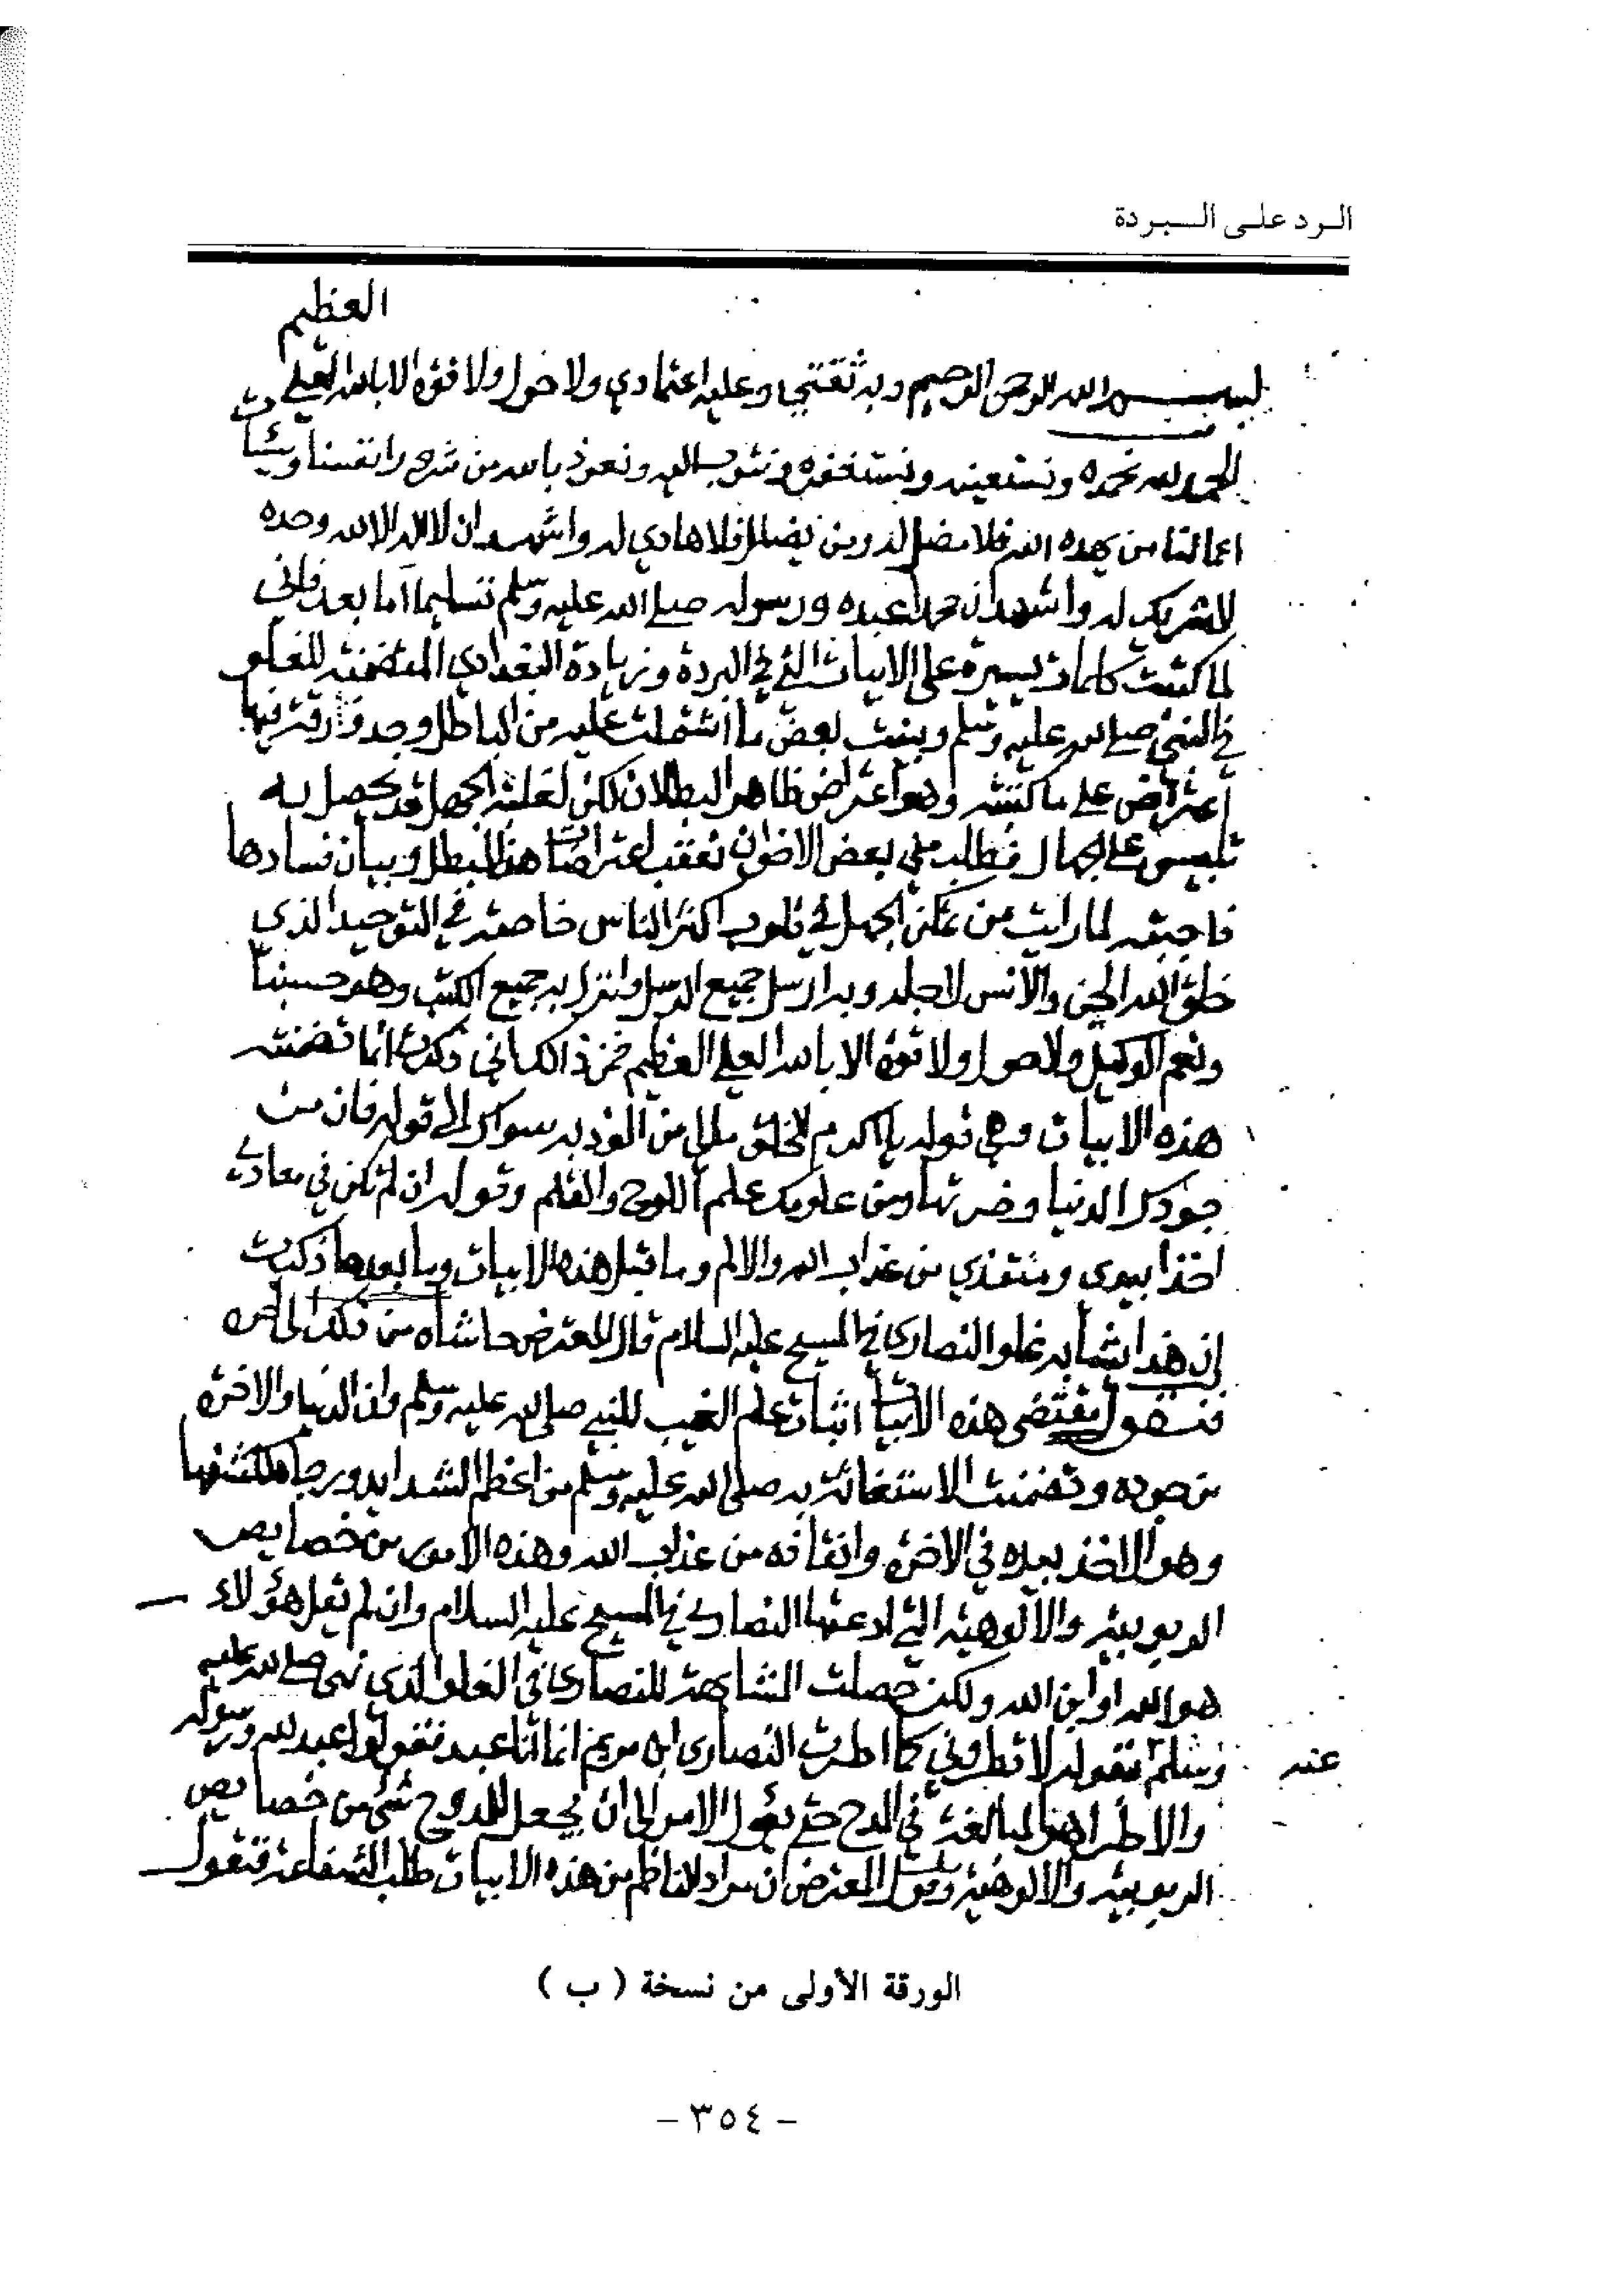 الرد على البردة
العظيم
بسم الله الرحمن الرحيم وبه ثقتي وعليه اعتمادي ولا حول ولا قوة الا بالله العلي
الحمد لله نحمده ونستعينه ونستغفره ونتوب اليه ونعوذ بالله من شرور انفسنا وسيئات
اعمالنا من يهده الله فلا مضل له ومن يضلل فلا هادي له واشهد ان لا اله الا الله وحده
لا شريك له واشهد ان محمدا عبده ورسوله صلى الله عليه وسلم تسليما اما بعد فاني
لما كتبت كلمات يسيرة على الابيات التي في البردة وزيادة البغدادي المتضمنة للغلو
في النبي صلى الله عليه وسلم وبينت بعض ما اشتملت عليه من الباطل وجد ورقة فيها
اعتراض على ما كتبته وهو اعتراض ظاهر البطلان لكن لغلبة الجهل قد يحصل به
تلبيس على الجهال فطلب مني بعض الاخوان تعقب اعتراضات هذا المبطل وبيان فسادها
فاجبته لما رايت من تمكن الجهل في قلوب اكثر الناس خاصة في التوحيد الذي
خلق الله الجن والانس لاجله وبه ارسل جميع الرسل وانزل به جميع الكتب وهو حسبنا
ونعم الوكيل ولا حول ولا قوة الا بالله العلي العظيم فمن ذالك اني ذكرت انما تضمنته
هذه الابيات وهي قوله يا اكرم الخلق مالي من الوذ به سواك الى قوله فان من
جودك الدنيا وضرتها ومن علومك علم اللوح والقلم وقوله ان لم تكن في معادي
اخذا بيدي ومنقذي من عذاب الله والالم وما قبل هذه الابيات وما بعدها ذكرت
ان هذا يشابه غلو النصارى في المسيح عليه السلام قال المعترض حاشاه من ذلك الى اخره
فنقول مقتضى هذه الابيات اثبات علم الغيب للنبي صلى الله عليه وسلم وان الدنيا والاخرة
من جوده وتضمنت الاستغاثة به صلى الله عليه وسلم من اعظم الشدايد ورجاه لكشفها
وهو الاخذ بيده في الاخرة وانقاذه من عذاب الله وهذه الامور من خصايص
الربوبية والالوهية التي ادعتها النصارى في المسيح عليه السلام وان لم يقل هؤلاء
هو الله او ابن الله ولكن حصلت المشابهة للنصارى في الغلو الذي نهى صلى الله عليه
عنه وسلم بقوله لا تطروني كما اطرت النصارى ابن مريم انما انا عبد فقولوا عبد الله ورسوله
والاطرا هو المبالغة في المدح حتى يؤل الامر الى ان يجعل للممدوح شئ من خصايص
الربوبية والالوهية وقول المعترض ان مراد الناظم من هذه الابيات طلب الشفاعة فنقول
الورقة الأولى من نسخة ( ب )
- ٣٥٤ -